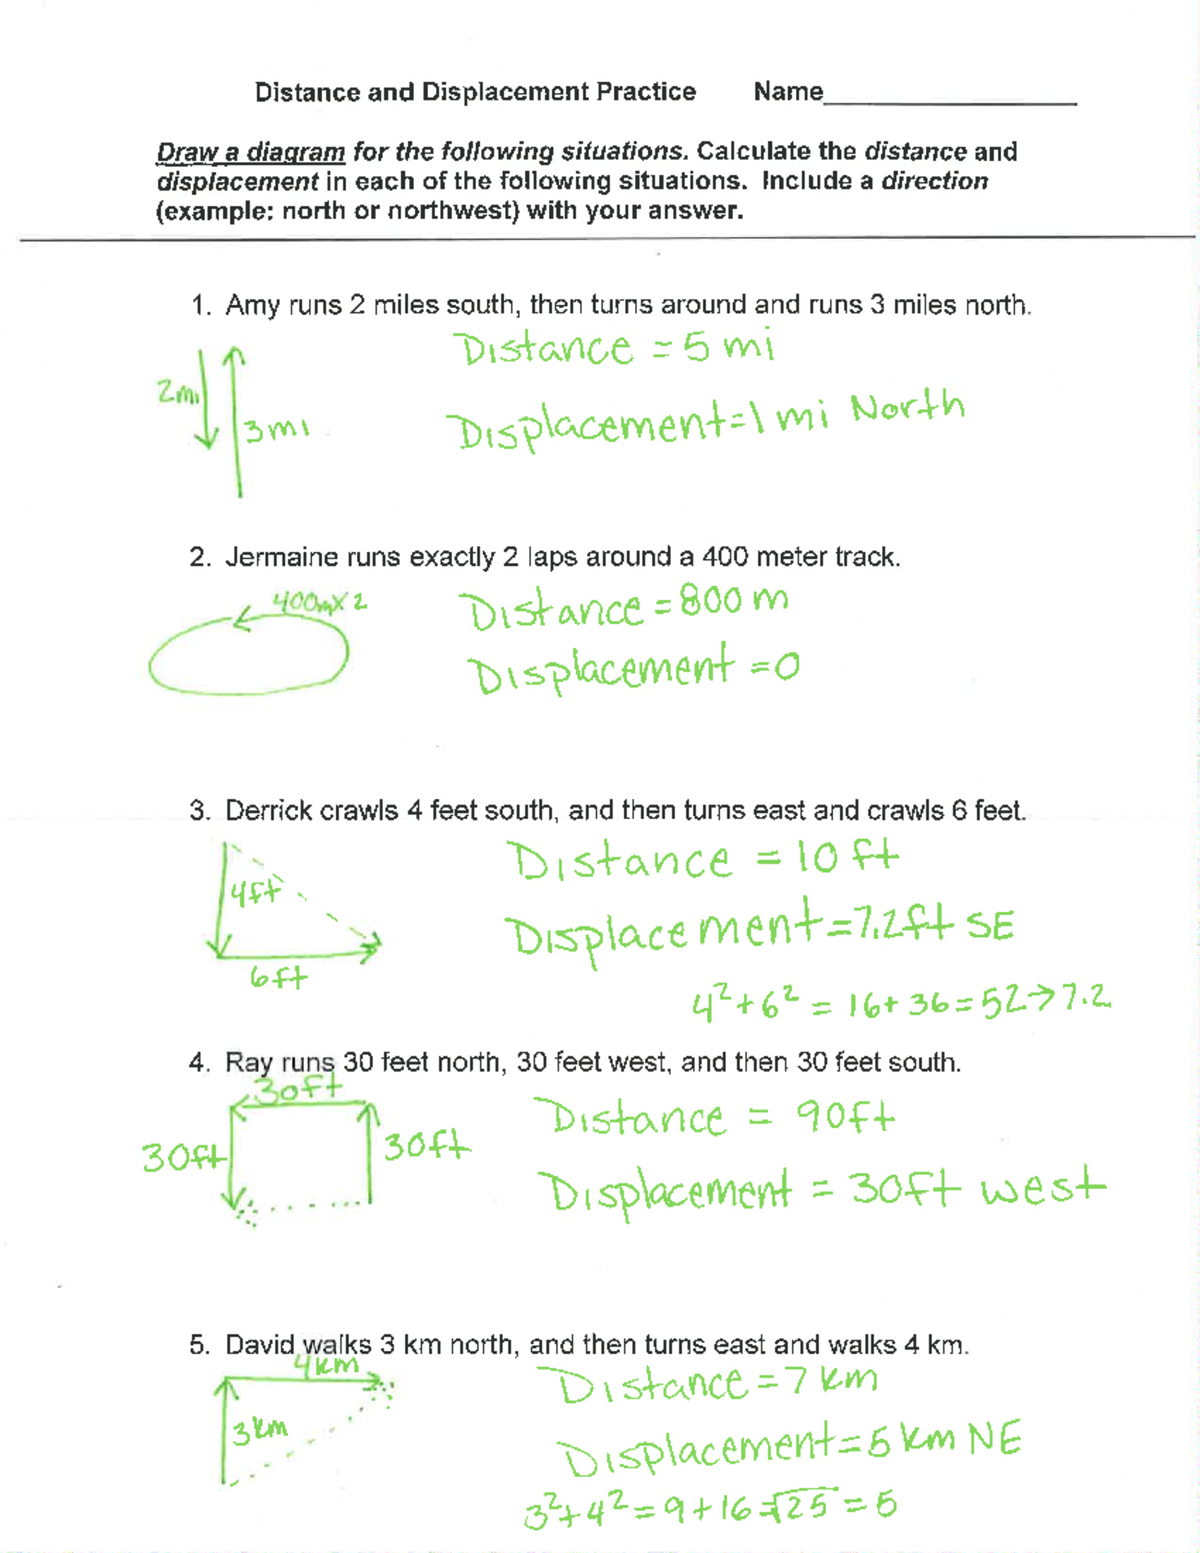 Distance and Displacement Practice Name
Draw a diagram for the following situations. Calculate the distance and
displacement in each of the following situations. Include a direction
(example: north or northwest) with your answer.
1. Amy runs 2 miles south, then turns around and runs 3 miles north.
Distance = 5 mi
2mi
3mi
Displacement=1 mi North
2. Jermaine runs exactly 2 laps around a 400 meter track.
400mX2
Distance = 800 m
Displacement = 0
3. Derrick crawls 4 feet south, and then turns east and crawls 6 feet.
Distance = 10 ft
4ft
Displacement=7.2ft SE
6ft
4²+6² = 16+36=52→7.2
4. Ray runs 30 feet north, 30 feet west, and then 30 feet south.
30ft
Distance = 90ft
30ft
30ft
Displacement = 30ft west
5. David walks 3 km north, and then turns east and walks 4 km.
4km
Distance = 7 km
3km
Displacement=5 km NE
3²+4²=9+16=√25=5